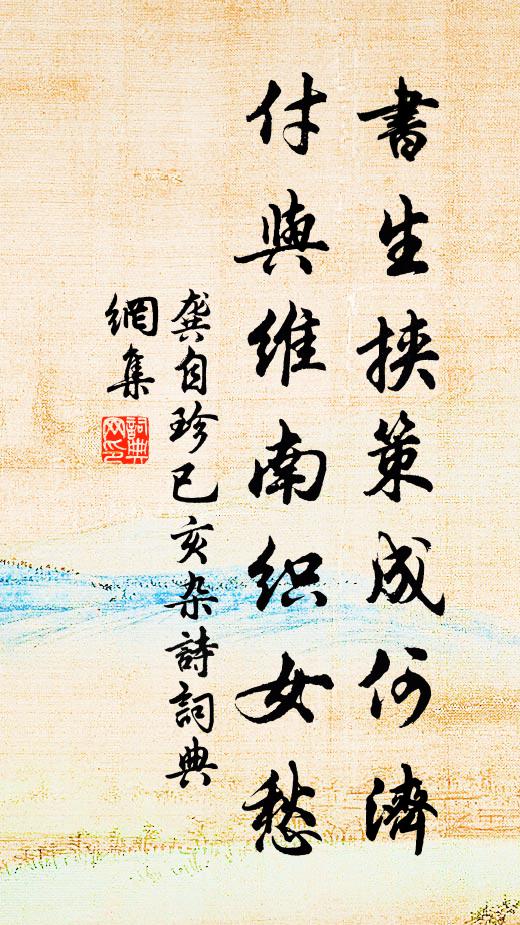 書生挾策成何濟
付與維南织女愁
龔自珍已亥杂詩詞典
網集
詞典
网印